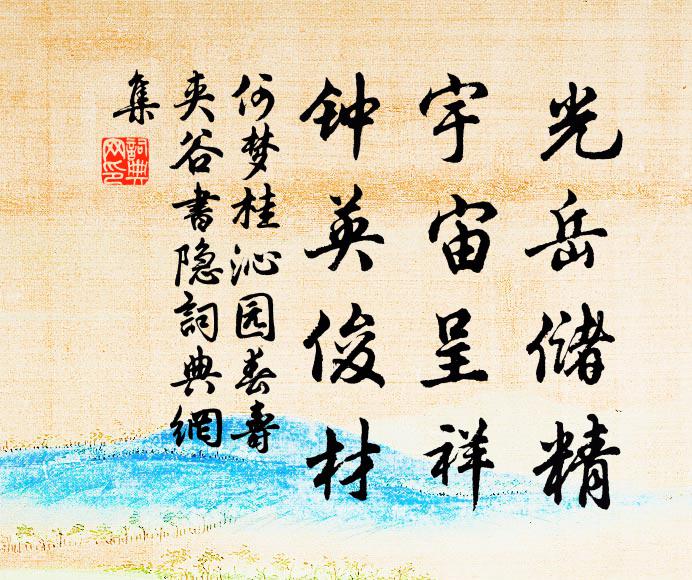 光岳储精
宇宙呈祥
钟英俊材
何梦桂沁园春寿
夹谷书隐詞典網
集
詞典
网印